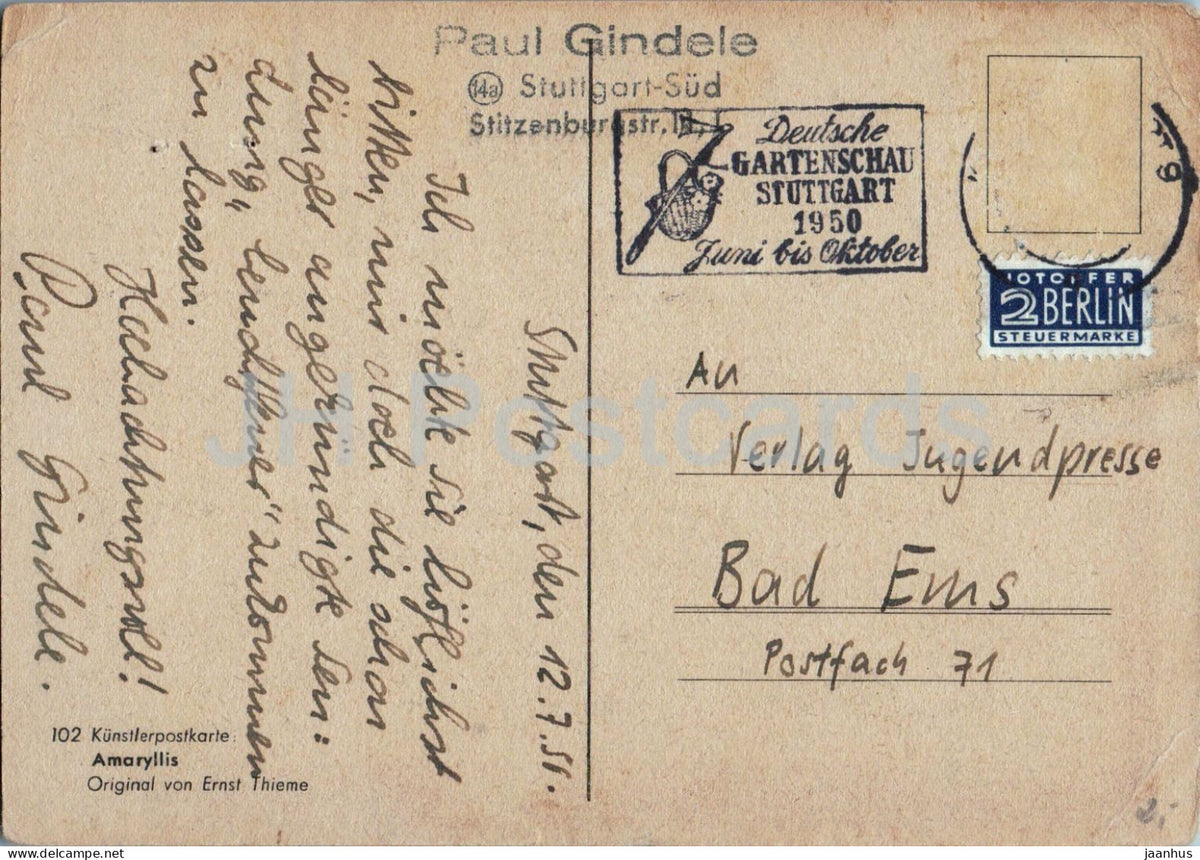 Paul Gindele
14a Stuttgart-Süd
Stitzenburgstr.
Deutsche
GARTENSCHAU
STUTTGART
1950
Juni bis Oktober
NOTOPFER
2 BERLIN
STEUERMARKE
An
Verlag Jugendpresse
Bad Ems
Postfach 71
Stuttgart, den 12.7.50.
Ich möchte Sie höflichst
bitten, mir doch die schon
länger angekündigte Sen=
dung „ " zukommen
zu lassen.
Hochachtungsvoll!
Paul Gindele.
102 Künstlerpostkarte:
Amaryllis
Original von Ernst Thieme
JH Postcards
2,-
delcampe.net
jaanhus